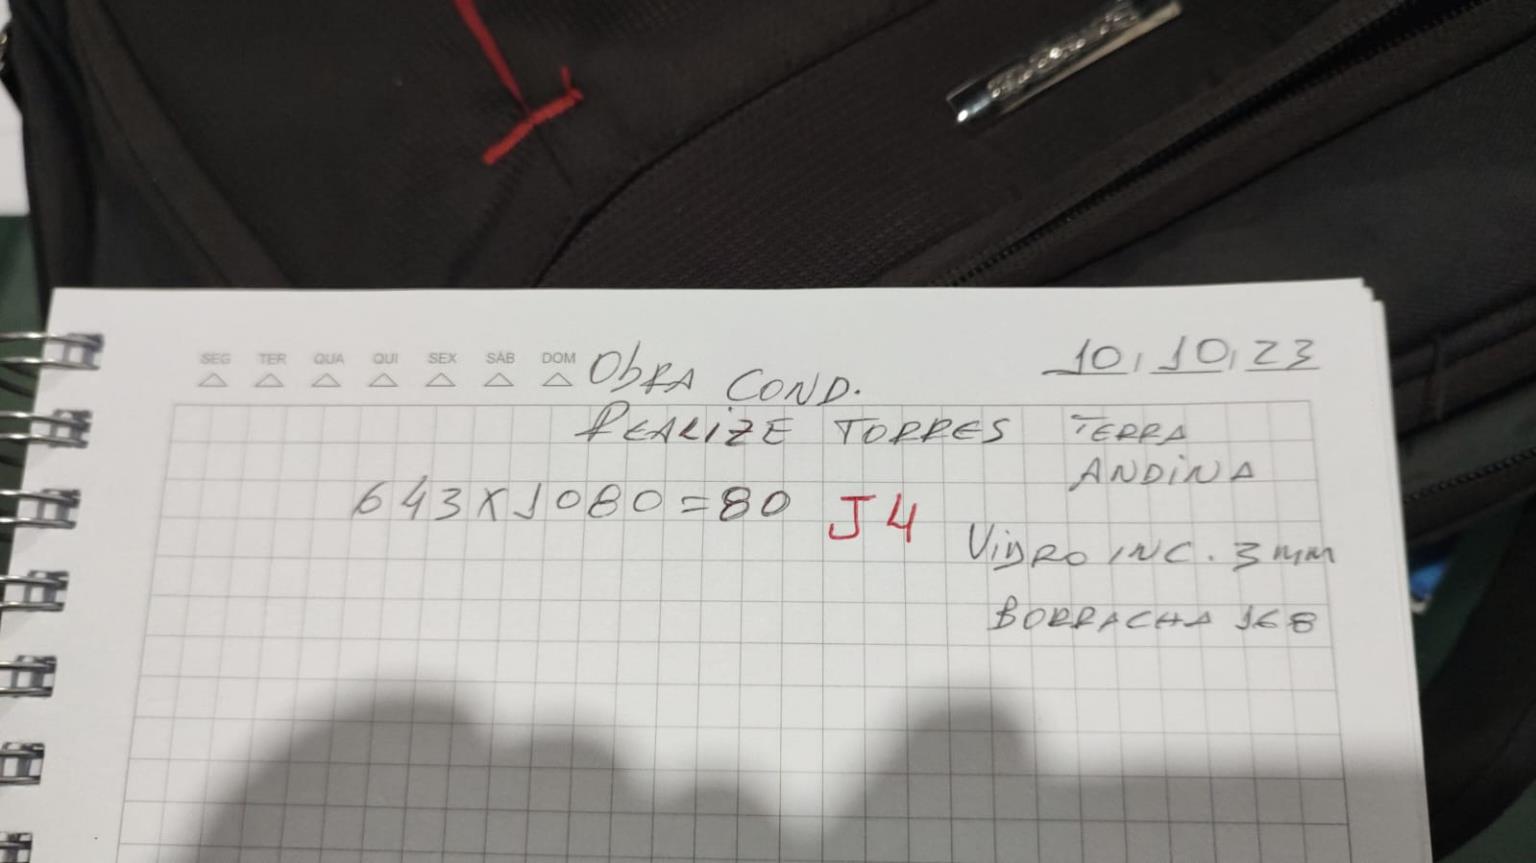 SEG TER QUA QUI SEX SÁB DOM
10, 10, 23
ObRA COND.
REALIZE TORRES
TERRA
ANDINA
643X1080=80 J4
VIDRO INC. 3mm
BORRACHA 168